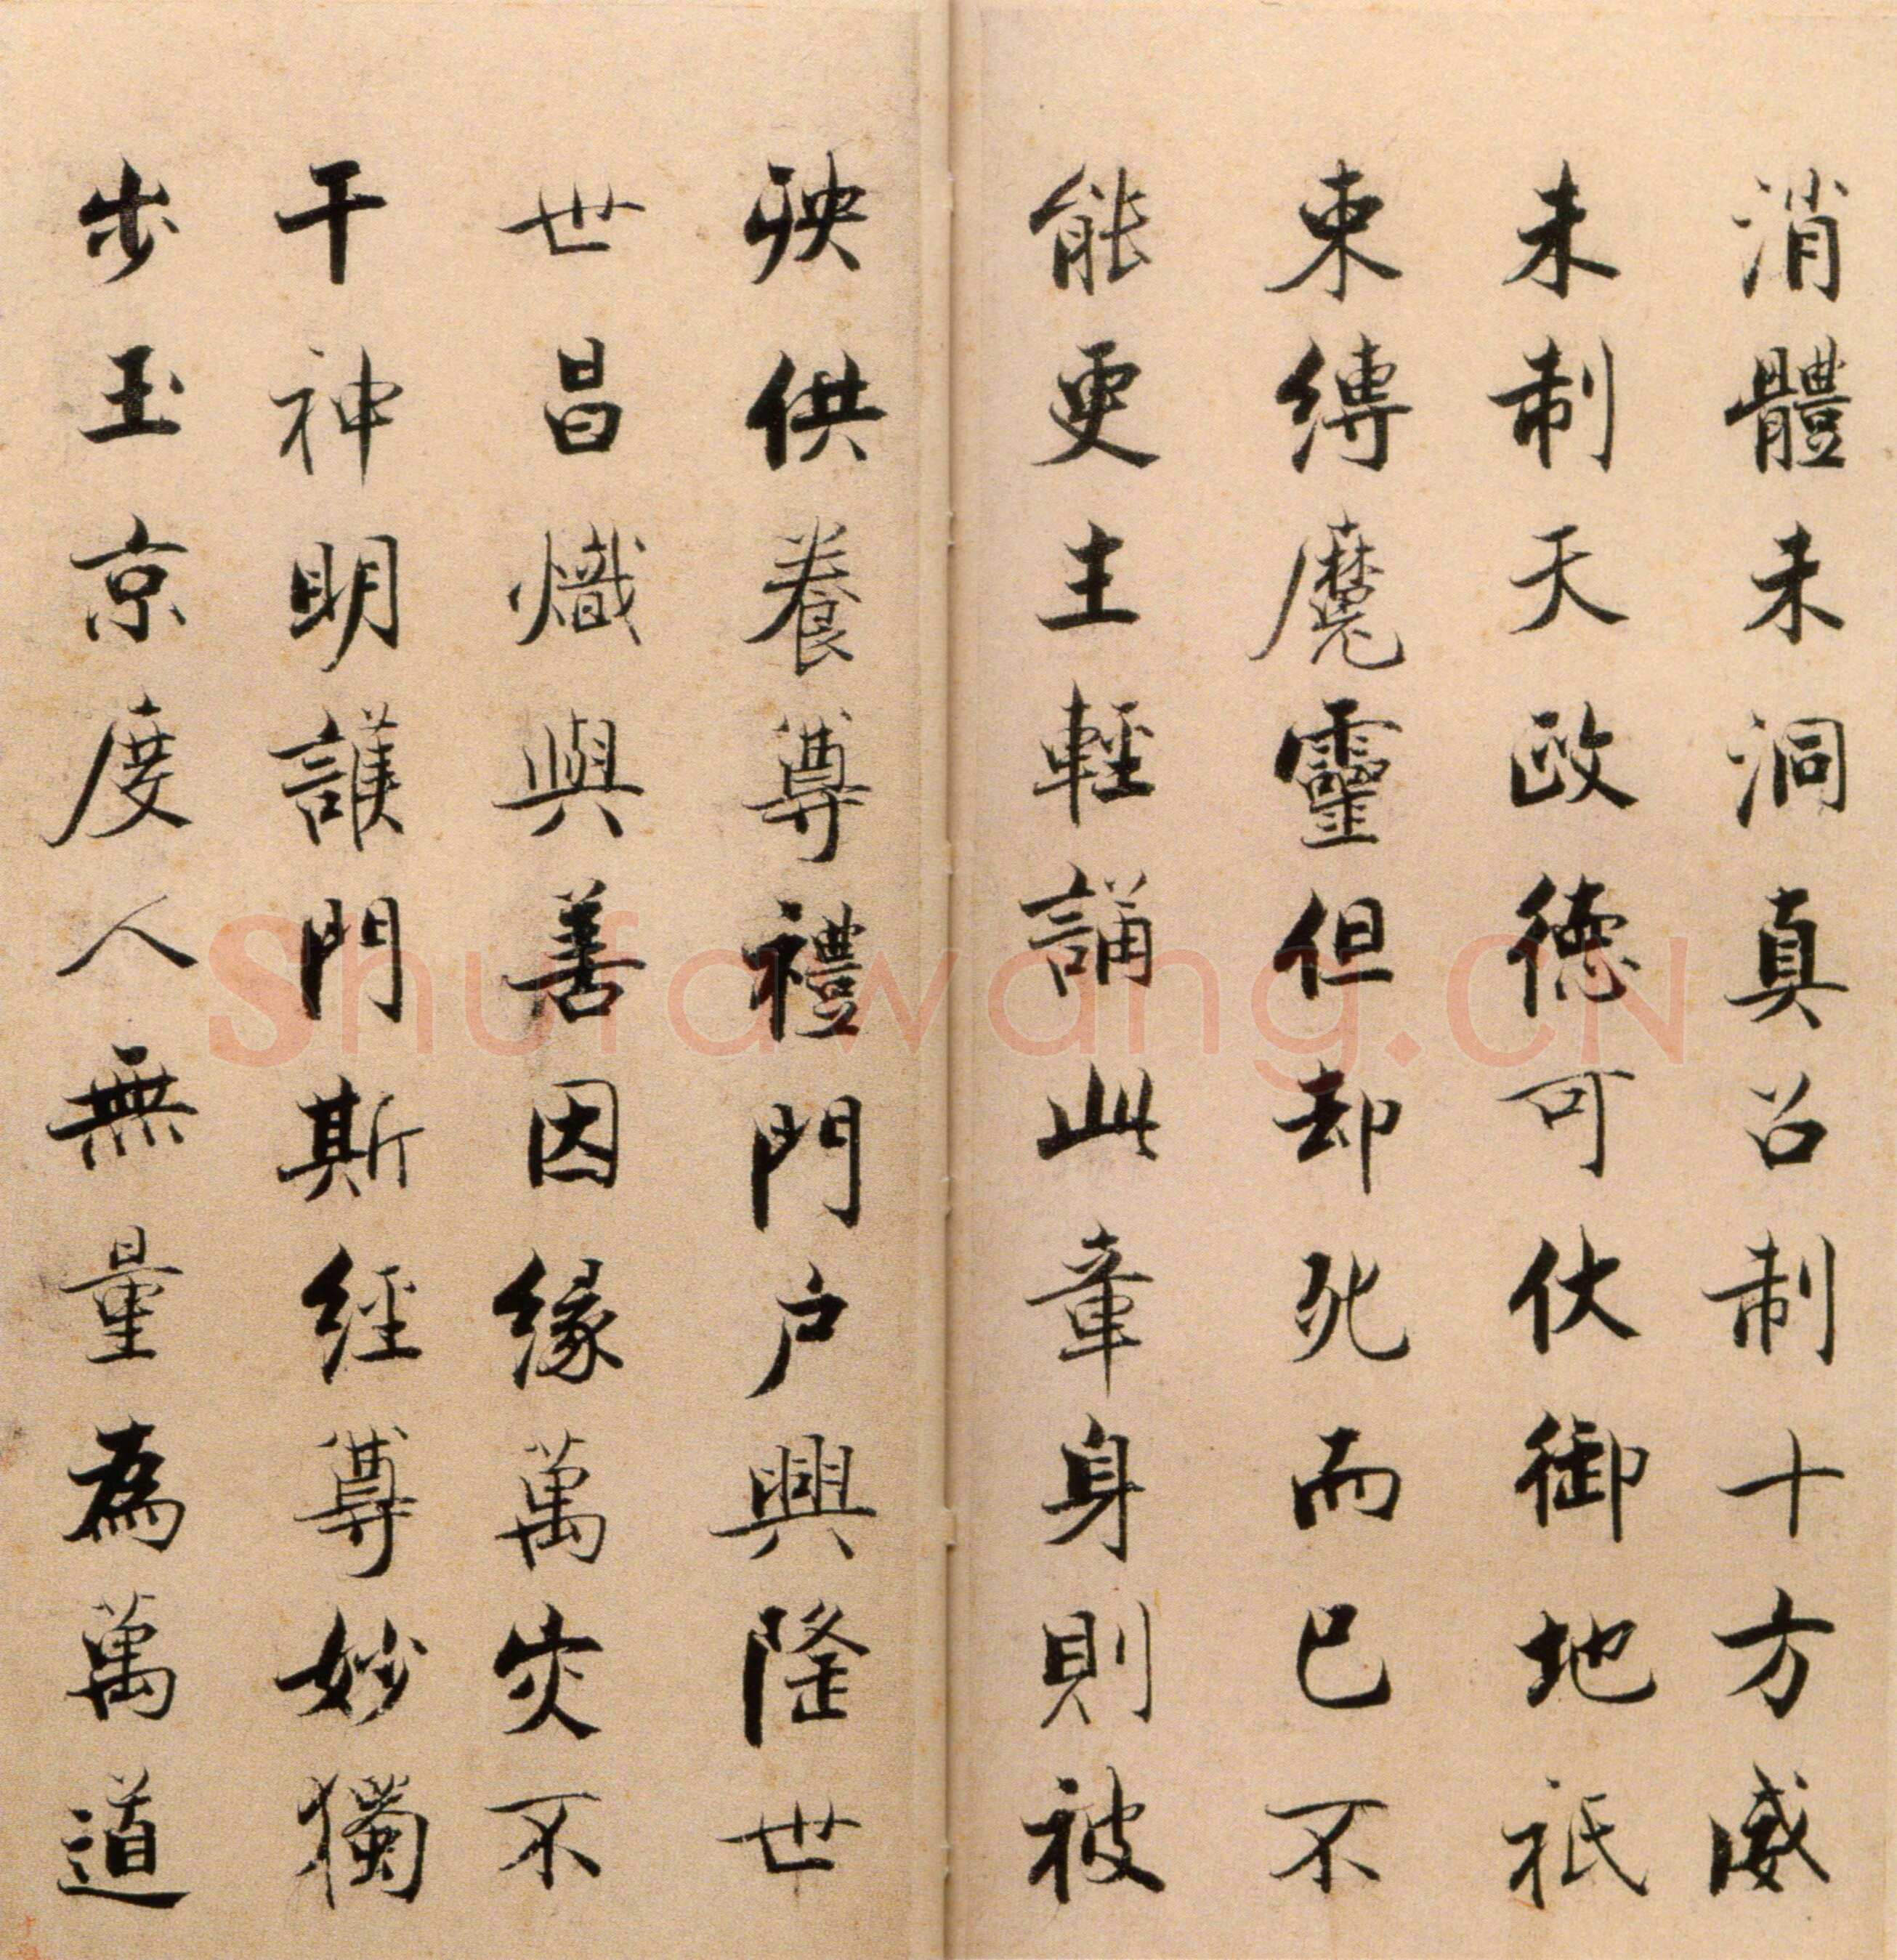 消體未洞真召制十方威
未制天政德可伏御地祇
束縛魔靈但却死而已不
能更生輕誦此章身則被
殃供養尊禮門户興隆世
世昌熾與善因緣萬灾不
干神明護門斯經尊妙獨
步玉京度人無量為萬道
Shufawang.CN